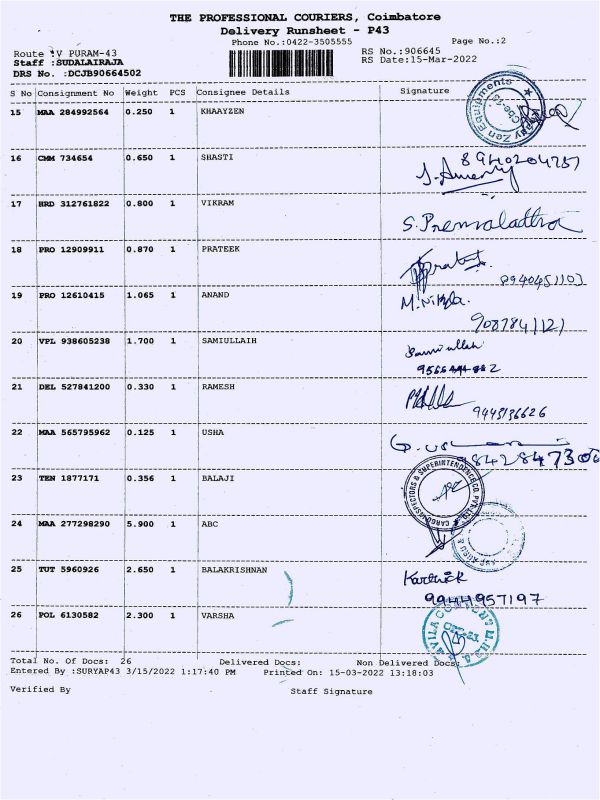 THE PROFESSIONAL COURIERS, Coimbatore
Delivery Runsheet - P43
Phone No.:0422-3505555 Page No.:2
Route :V PURAM-43 RS No.:906645
Staff :SUDALAIRAJA RS Date:15-Mar-2022
DRS No. :DCJB90664502
S No Consignment No Weight PCS Consignee Details Signature
15 MAA 284992564 0.250 1 KHAAYZEN
16 CMM 734654 0.650 1 SHASTI
8940204757
17 HRD 312761822 0.800 1 VIKRAM
S. Premaladha
18 PRO 12909911 0.870 1 PRATEEK
19 PRO 12610415 1.065 1 ANAND
20 VPL 938605238 1.700 1 SAMIULLAIH
Samiullah
21 DEL 527841200 0.330 1 RAMESH
9445136626
22 MAA 565795962 0.125 1 USHA
23 TEN 1877171 0.356 1 BALAJI
24 MAA 277298290 5.900 1 ABC
25 TUT 5960926 2.650 1 BALAKRISHNAN
Karthick
9944957197
26 POL 6130582 2.300 1 VARSHA
Total No. Of Docs: 26 Delivered Docs: Non Delivered Docs:
Entered By :SURYAP43 3/15/2022 1:17:40 PM Printed On: 15-03-2022 13:18:03
Verified By Staff Signature